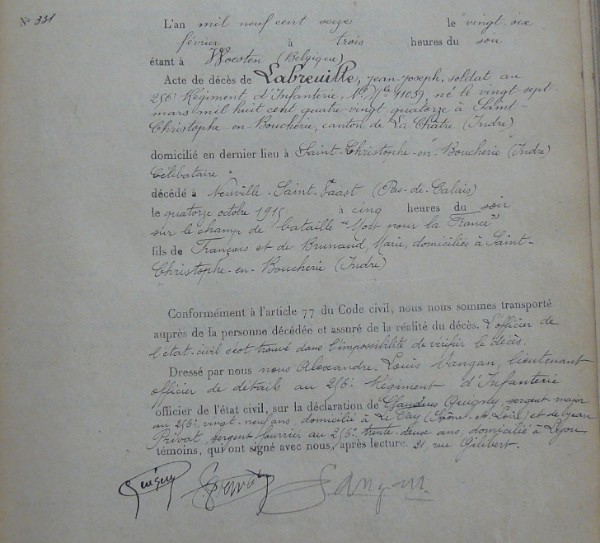 N° 331
L'an mil neuf cent seize le vingt six
février à trois heures du soir
étant à Woesten (Belgique)
Acte de décès de Labreuille, Jean-Joseph, soldat au
256e Régiment d'Infanterie, né le vingt sept
mars mil huit cent quatre-vingt quatorze à Saint-
Christophe-en-Boucherie, canton de La Châtre (Indre)
domicilié en dernier lieu à Saint-Christophe-en-Boucherie (Indre)
Célibataire
décédé à Neuville-Saint-Vaast (Pas-de-Calais)
le quatorze octobre 1915 à cinq heures du soir
sur le champ de bataille "Mort pour la France"
fils de François et de Brunaud, Marie, domiciliés à Saint-
Christophe-en-Boucherie (Indre)
Conformément à l'article 77 du Code civil, nous nous sommes transporté
auprès de la personne décédée et assuré de la réalité du décès. L'officier de
l'état-civil s'est trouvé dans l'impossibilité de vérifier le décès.
Dressé par nous Alexandre-Louis lieutenant
officier de détail au 256e Régiment d'Infanterie
officier de l'état civil, sur la déclaration de Claudius Quigny sergent major
au 256e vingt-neuf ans, domicilié à (Saône-et-Loire) et de Jean
Privat, sergent fourrier au 256e trente-deux ans, domicilié à Lyon
témoins, qui ont signé avec nous, après lecture. 21 rue Gilibert.